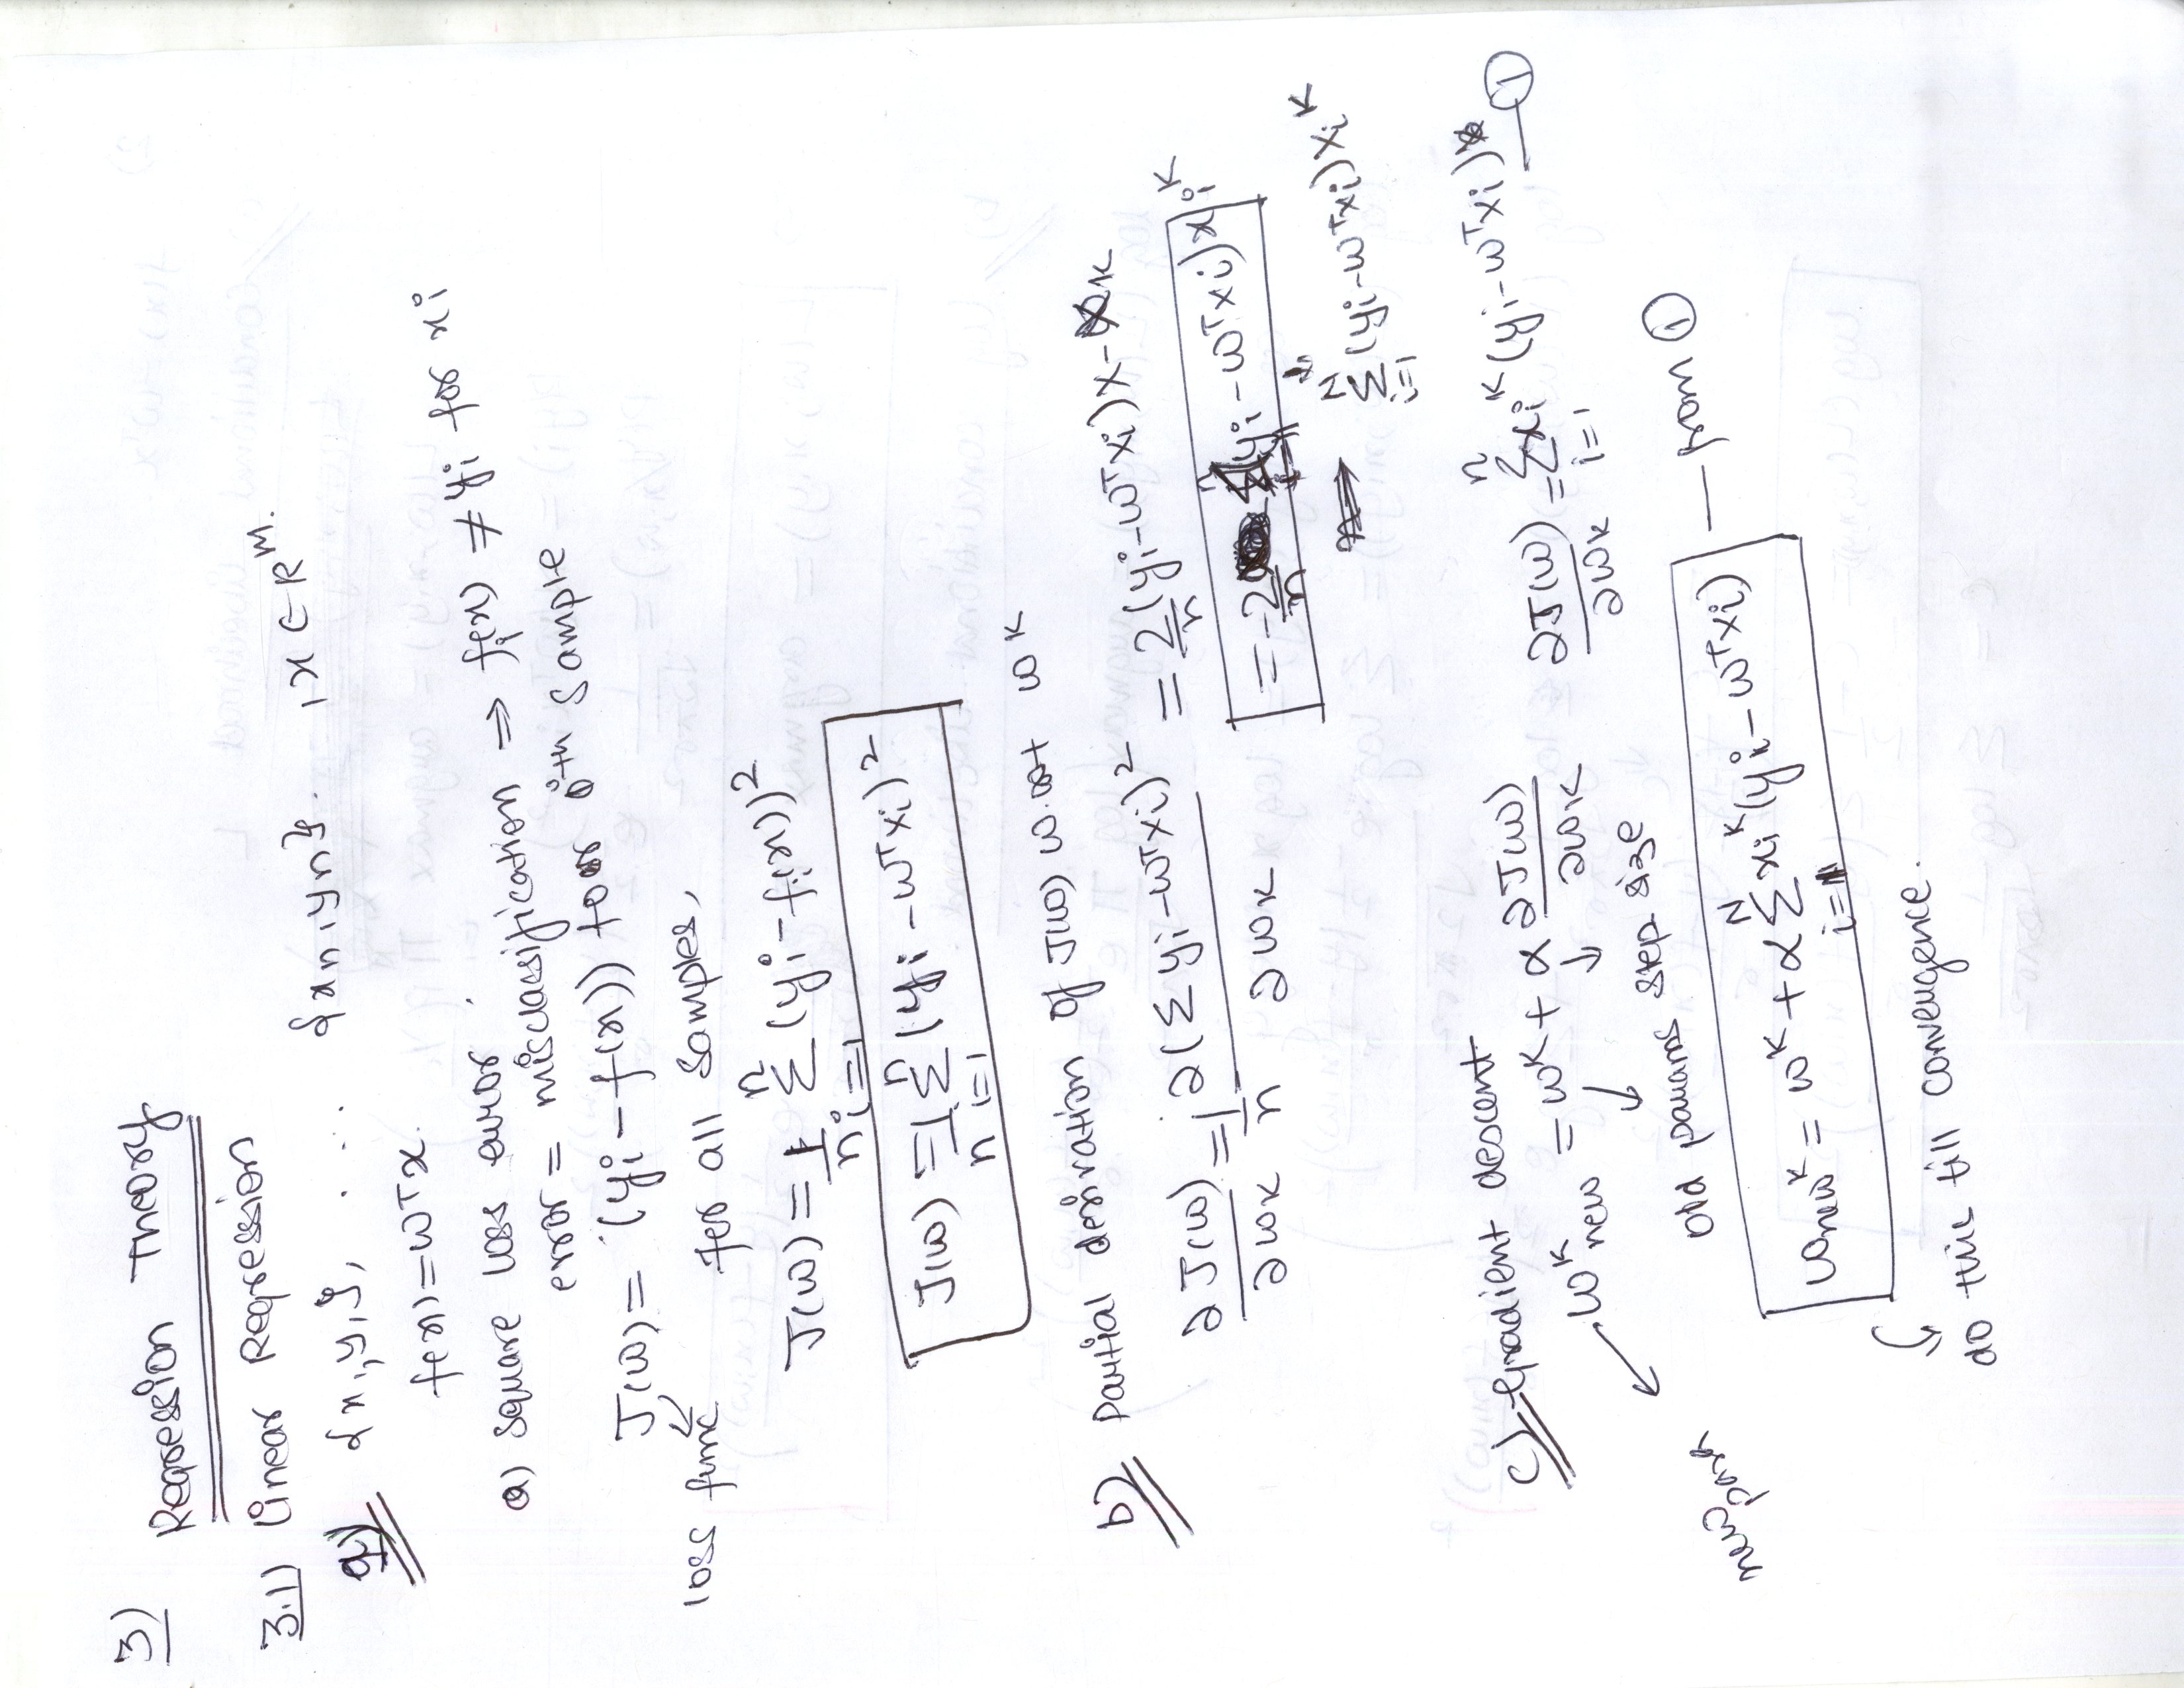 3) Regression Theory
3.1) Linear Regression
a) {x1,y1}, . . . {xn,yn}. , x ∈ R^m.
f(x) = w^T x.
a) square loss error
error = misclassification ⇒ f_i(x) ≠ y_i for x_i
J(w) = (y_i - f(x)) for ith sample
loss func
For all samples,
J(w) = 1/n Σ_{i=1}^{n} (y_i - f_i(x))^2
J(w) = 1/n Σ_{i=1}^{n} (y_i - w^T x_i)^2
b) Partial desiration of J(w) w.r.t w^K
∂J(w)/∂w^K = 1/n ∂(Σ y_i - w^T x_i)^2/∂w^K = 2/n (y_i - w^T x_i) x - K
= -2/n Σ (y_i - w^T x_i) x_i^K
Σ_{i=1}^{N} (y_i - w^T x_i) x_i^K
c) Gradient descent
w^K_new = w^K + α ∂J(w)/∂w^K ∂J(w)/∂w^K = Σ_{i=1}^{n} x_i^K (y_i - w^T x_i) — ①
new para old params step size
w_new^K = w^K + α Σ_{i=1}^{N} x_i^K (y_i - w^T x_i) — from ①
do this till convergence.